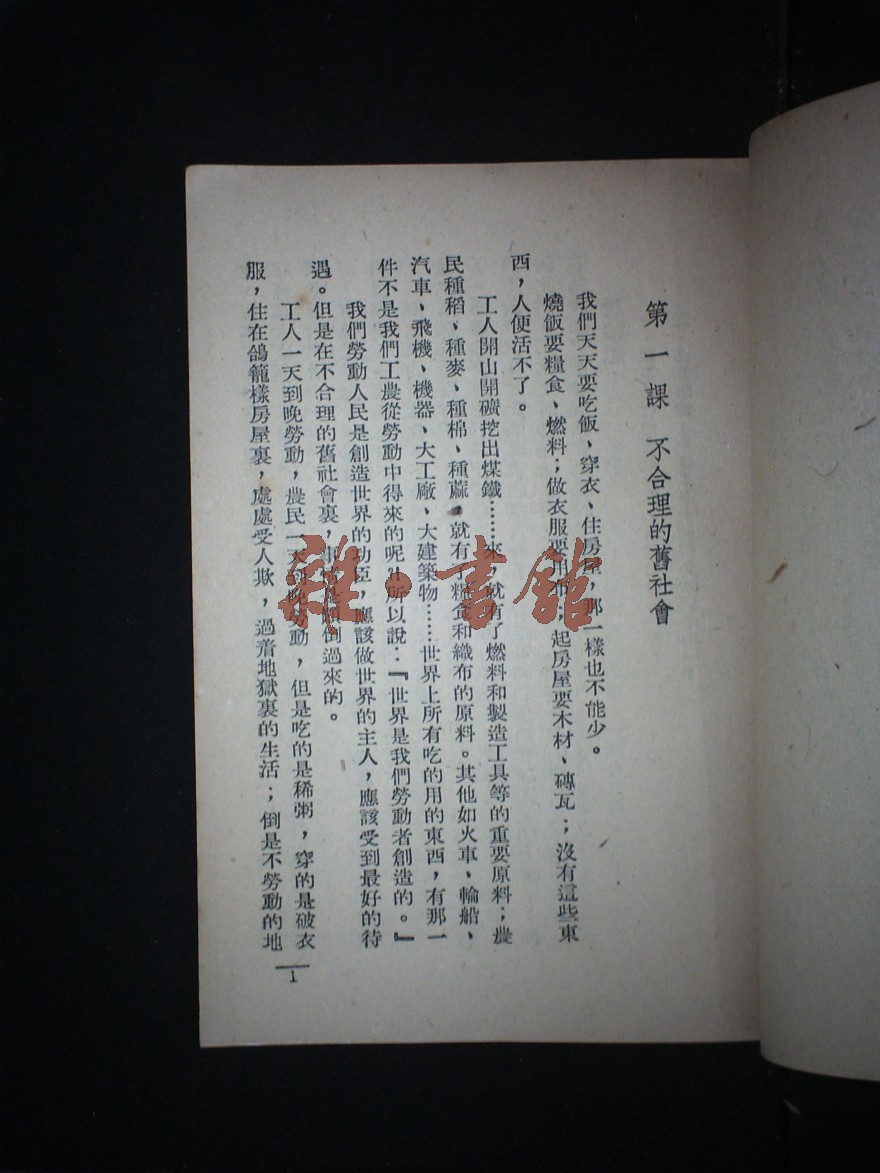 第一課 不合理的舊社會
我們天天要吃飯、穿衣、住房屋，那一樣也不能少。
燒飯要糧食、燃料；做衣服要用布；起房屋要木材、磚瓦；沒有這些東
西，人便活不了。
工人開山開礦挖出煤鐵……來，就有了燃料和製造工具等的重要原料；農
民種稻、種麥、種棉、種蔴，就有了糧食和織布的原料。其他如火車、輪船、
汽車、飛機、機器、大工廠、大建築物……世界上所有吃的用的東西，有那一
件不是我們工農從勞動中得來的呢！所以說：『世界是我們勞動者創造的。』
我們勞動人民是創造世界的功臣，應該做世界的主人，應該受到最好的待
遇。但是在不合理的舊社會裏，倒過來的。
工人一天到晚勞動，農民一天到晚勞動，但是吃的是稀粥，穿的是破衣
服，住在鴿籠樣房屋裏，處處受人欺，過着地獄裏的生活；倒是不勞動的地
1
雜·書館